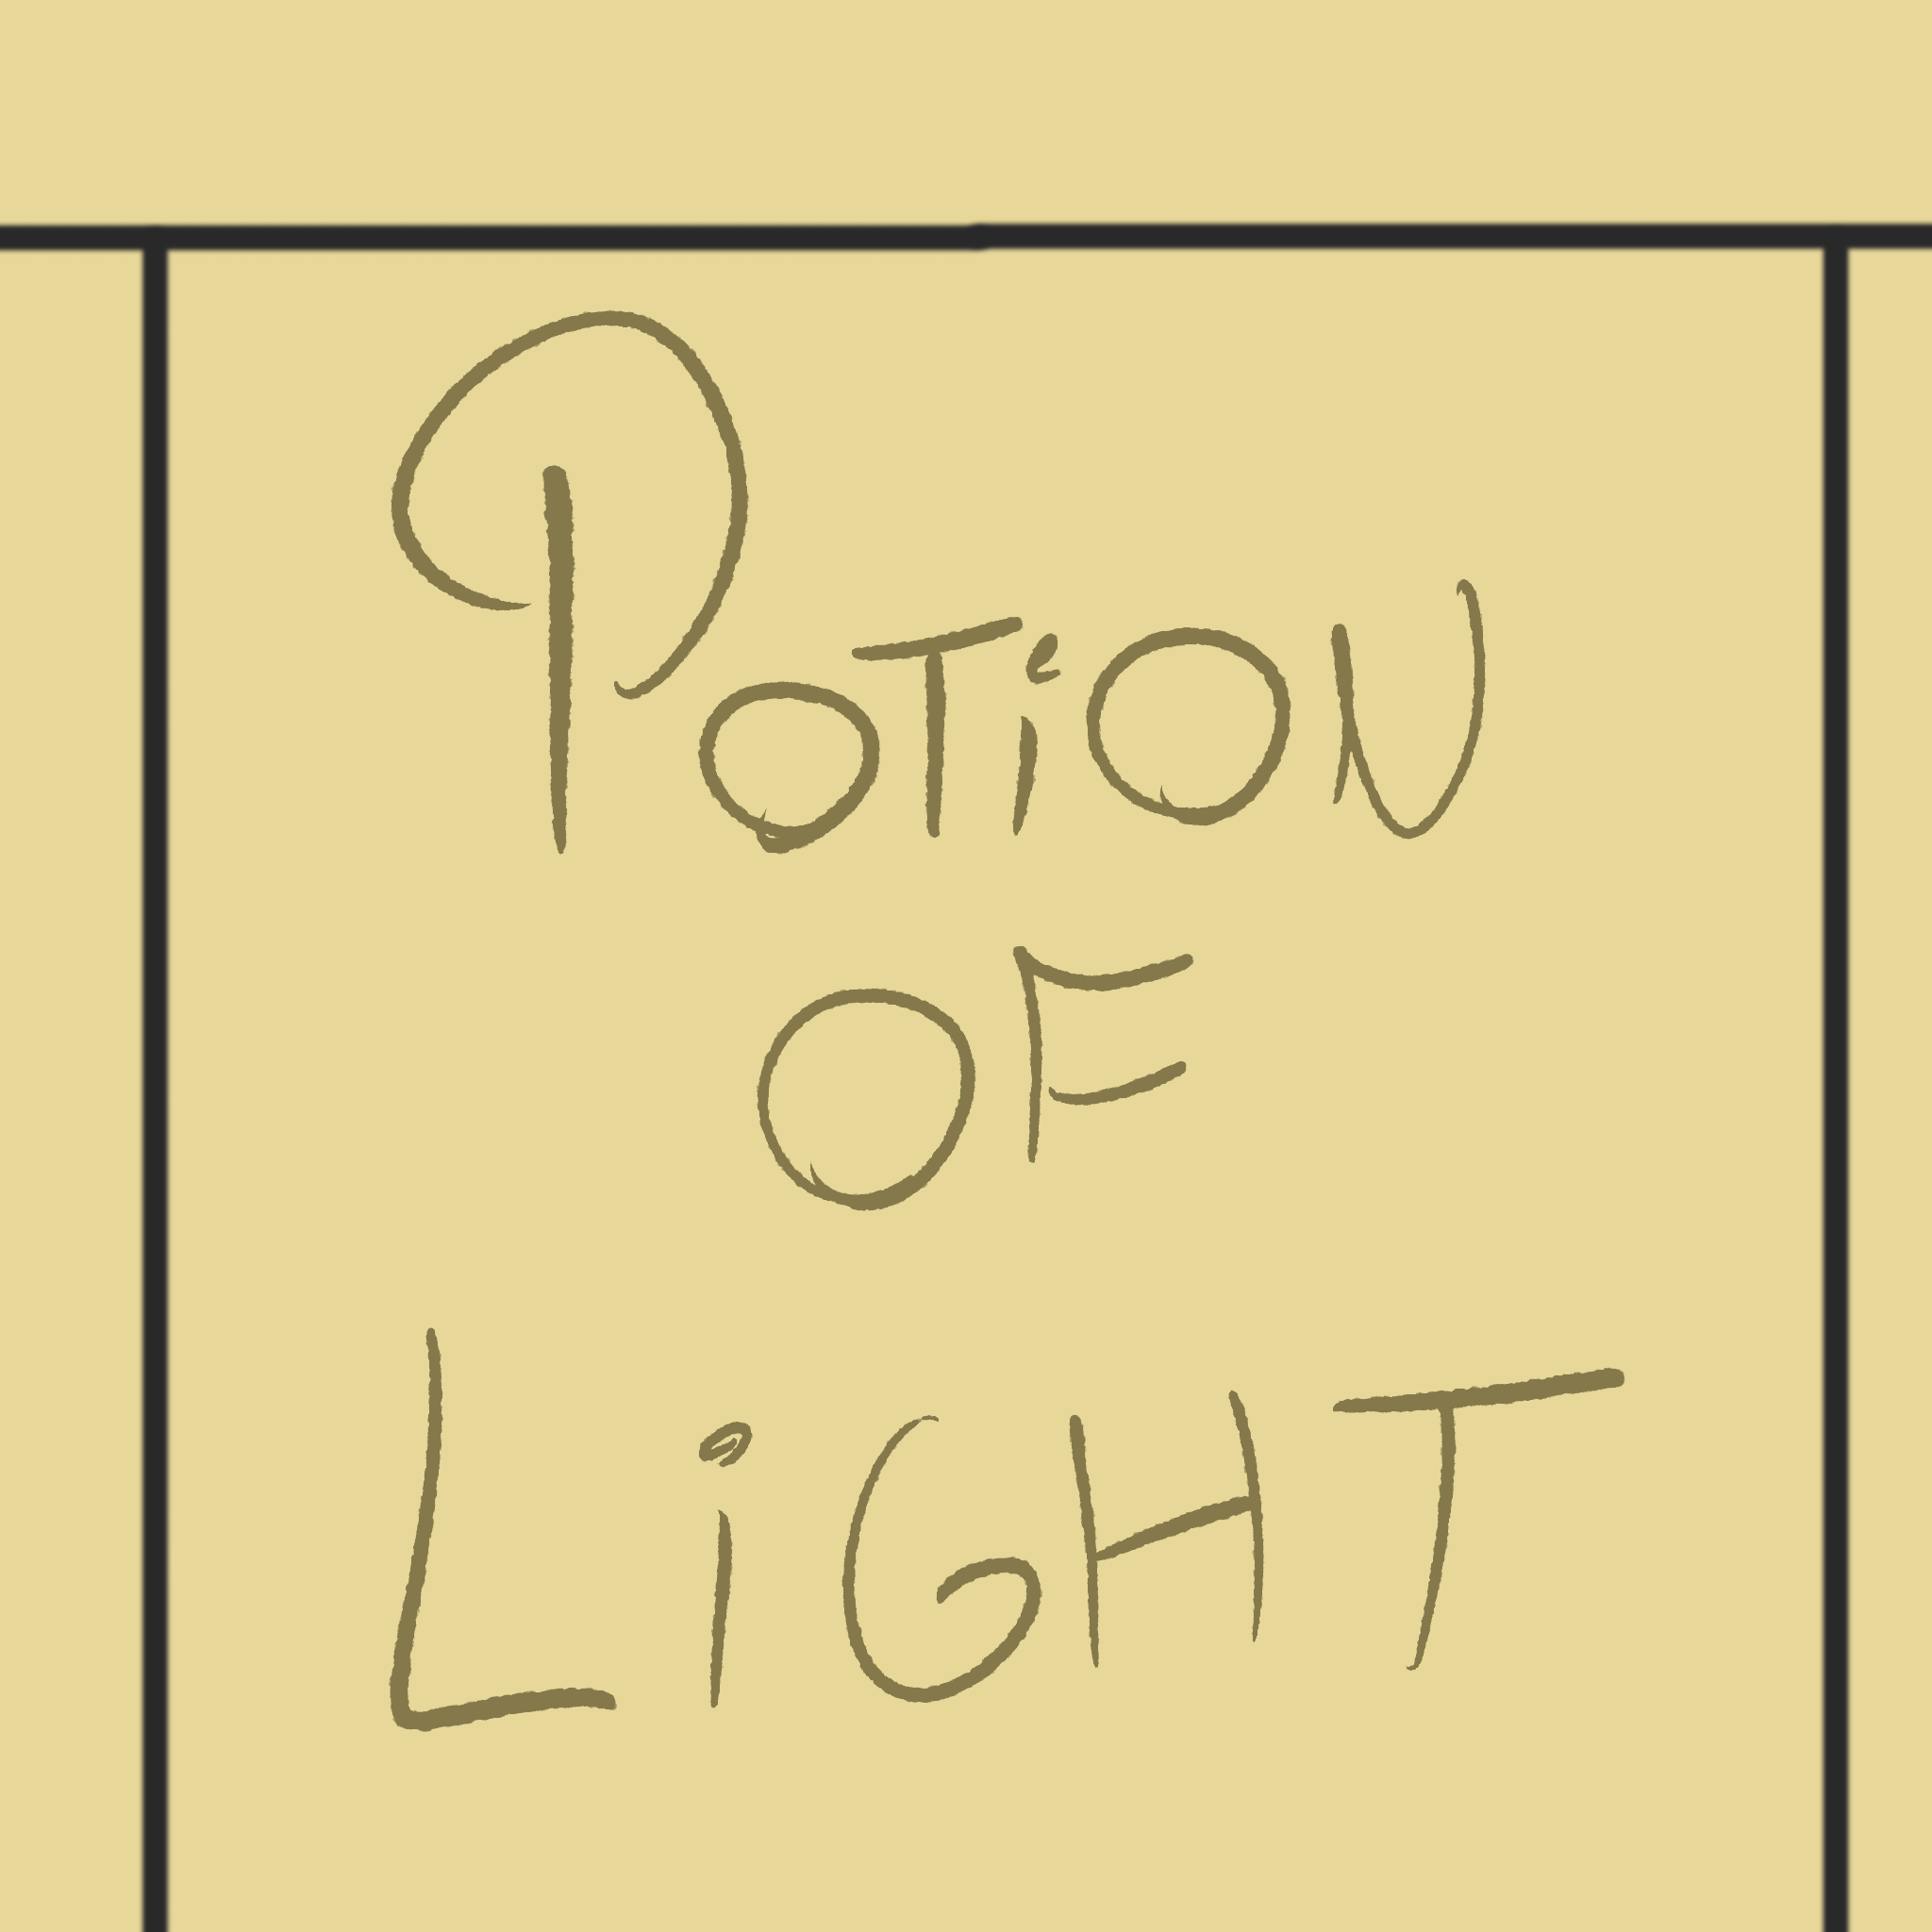 PoTiON
OF
LiGHT